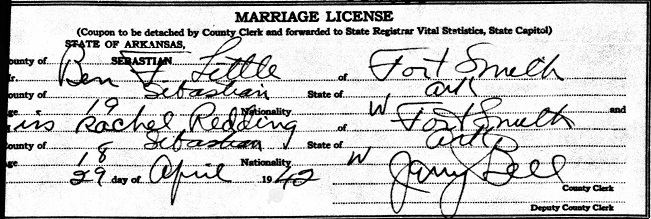 MARRIAGE LICENSE
(Coupon to be detached by County Clerk and forwarded to State Registrar Vital Statistics, State Capitol)
STATE OF ARKANSAS,
ounty of SEBASTIAN
r. Ben F Little of Fort Smith
ounty of Sebastian State of Ark
ge 19 Nationality W and
iss Rachel Redding of Fort Smith
ounty of Sebastian State of Ark
ge 18 Nationality W
29 day of April 1942 Jerry Bell
County Clerk
Deputy County Clerk